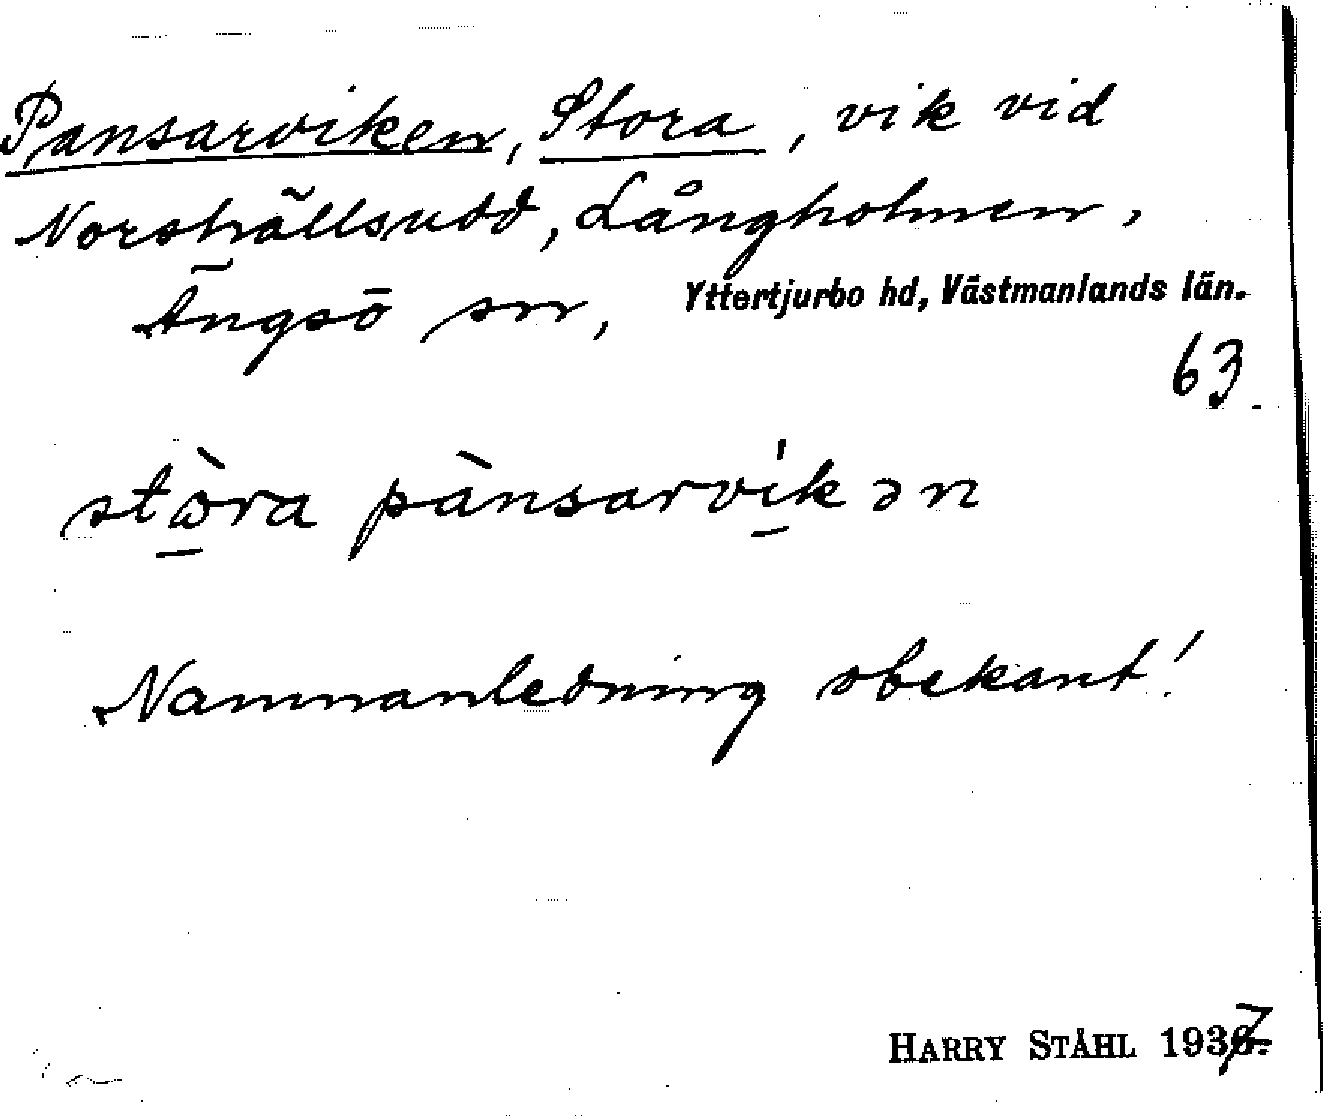 Pansarviken, Stora, vik vid
Norshällsudd, Långholmen,
Ängsö sn, Yttertjurbo hd, Västmanlands län.
63.
stὼ̱ra pànsarvi̱̍kən
Namnanledning obekant!
HARRY STÅHL 1937.